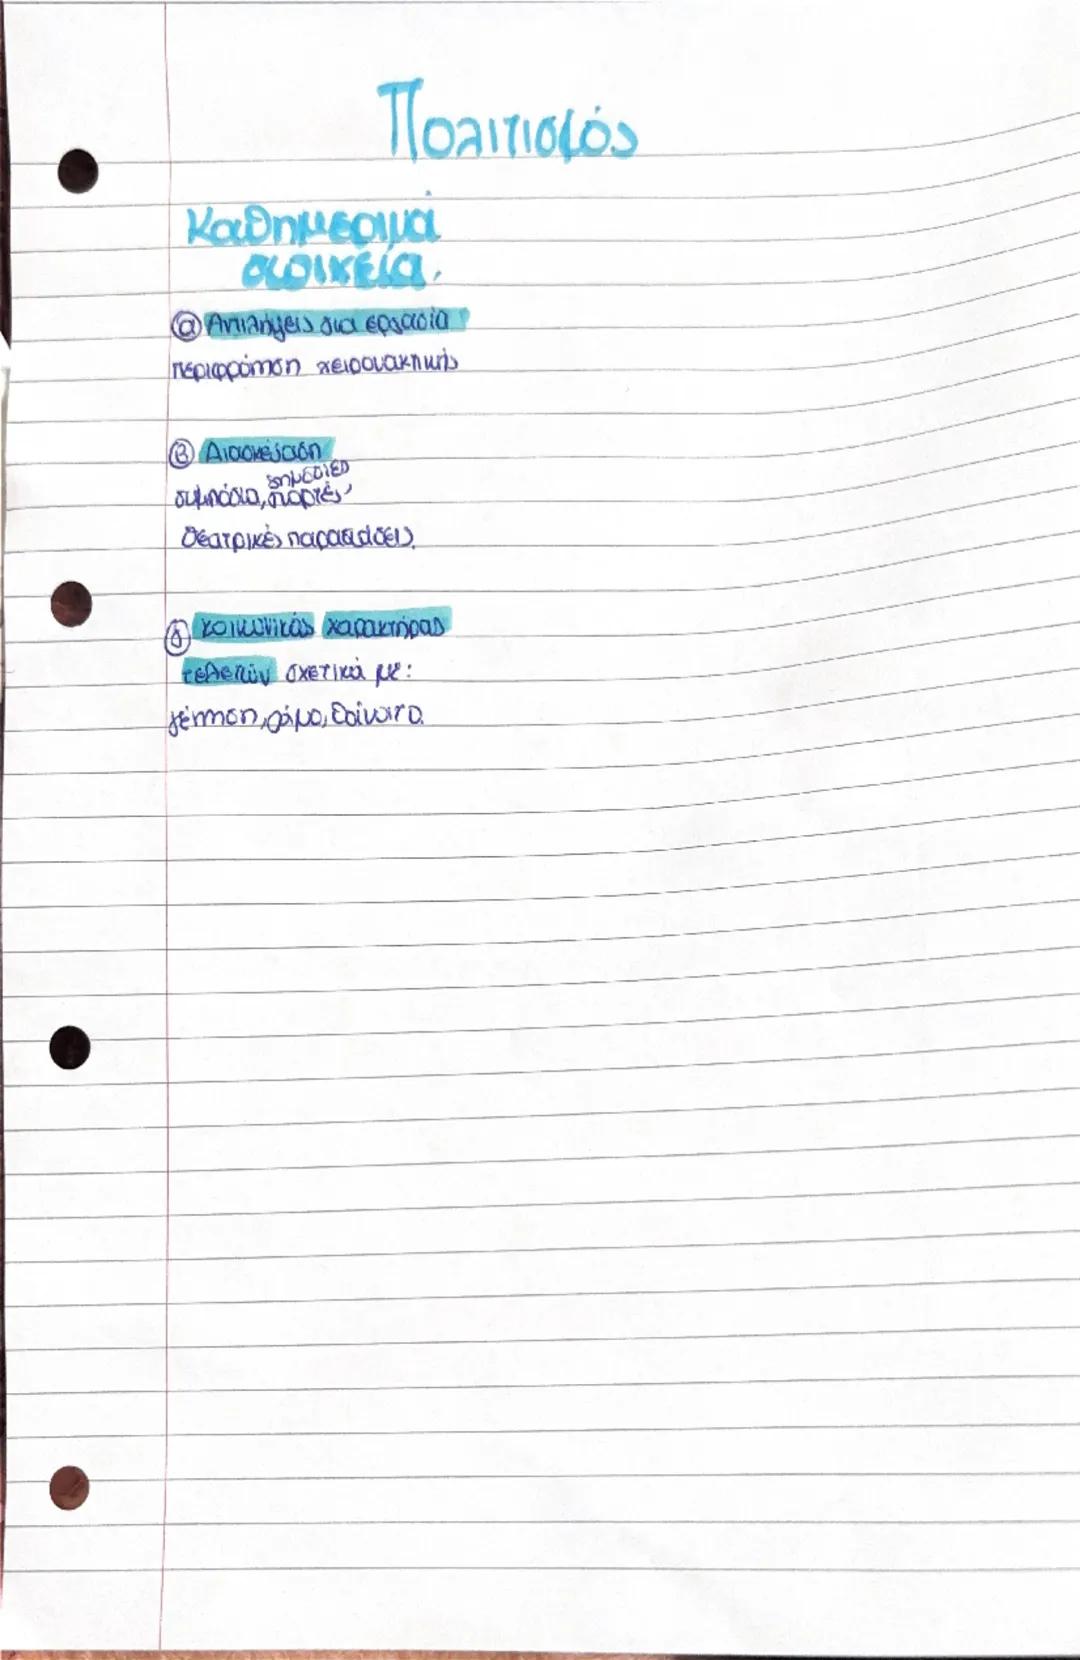 Πολιτισμός
Καθημερινά
στοιχεία.
α Αντιλήψεις για εργασία
περιφρόνηση χειρονακτικής
β Διασκέδαση
δημόσιες
συμπόσια, γιορτές,
θεατρικές παραστάσεις.
γ κοινωνικός χαρακτήρας
τελετών σχετικά με:
γέννηση, γάμο, θάνατο.